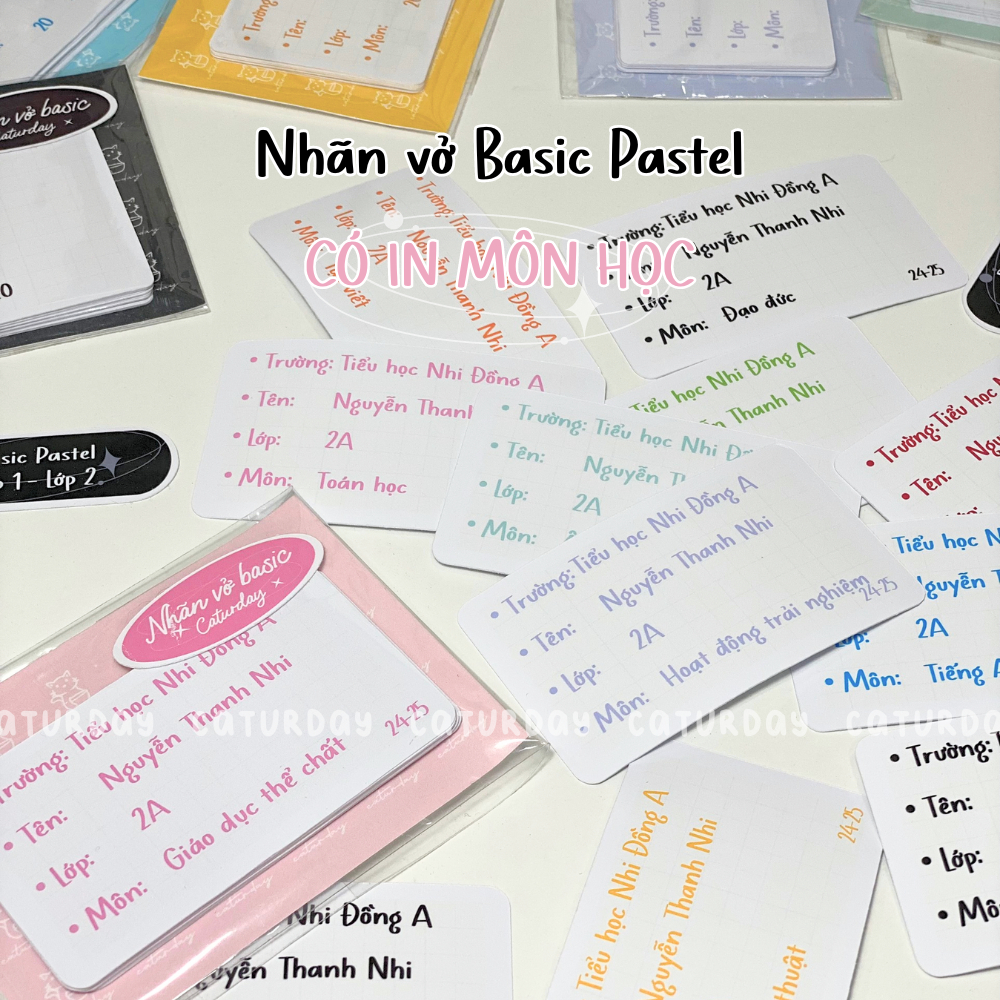 20
• Trường:
• Tên:
• Lớp:
• Môn:
• Trường:
• Tên:
• Lớp:
• Môn:
vở basic
Caturday
Nhãn vở Basic Pastel
CÓ IN MÔN HỌC
• Trường: Tiểu học Nhi Đồng A
• Tên: Nguyễn Thanh Nhi
• Lớp: 2A
• Môn: Tiếng Việt
• Trường: Tiểu học Nhi Đồng A
• Tên: Nguyễn Thanh Nhi
• Lớp: 2A
24-25
• Môn: Đạo đức
• Trường: Tiểu học Nhi Đồng A
• Tên: Nguyễn Thanh
• Lớp: 2A
• Môn: Toán học
Tiểu học Nhi Đồng A
Thanh Nhi
• Trường: Tiểu học Nhi
• Tên: Nguyễn
• Lớp: 2A
• Môn:
• Trường: Tiểu học
• Tên:
Basic Pastel
1 - Lớp 2
• Trường: Tiểu học Nhi Đồng A
• Tên: Nguyễn Thanh Nhi
• Lớp: 2A
• Môn: Hoạt động trải nghiệm
24-25
Tiểu học
Nguyễn
Lớp: 2A
• Môn: Tiếng
Nhãn vở basic
Caturday
Trường: Tiểu học Nhi Đồng A
• Tên: Nguyễn Thanh Nhi
• Lớp: 2A
• Môn: Giáo dục thể chất
24-25
CATURDAY CATURDAY CATURDAY CATURDAY
Tiểu học Nhi Đồng A
Nguyễn Thanh Nhi
thuật
24-25
• Trường:
• Tên:
• Lớp:
Nhi Đồng A
Nguyễn Thanh Nhi